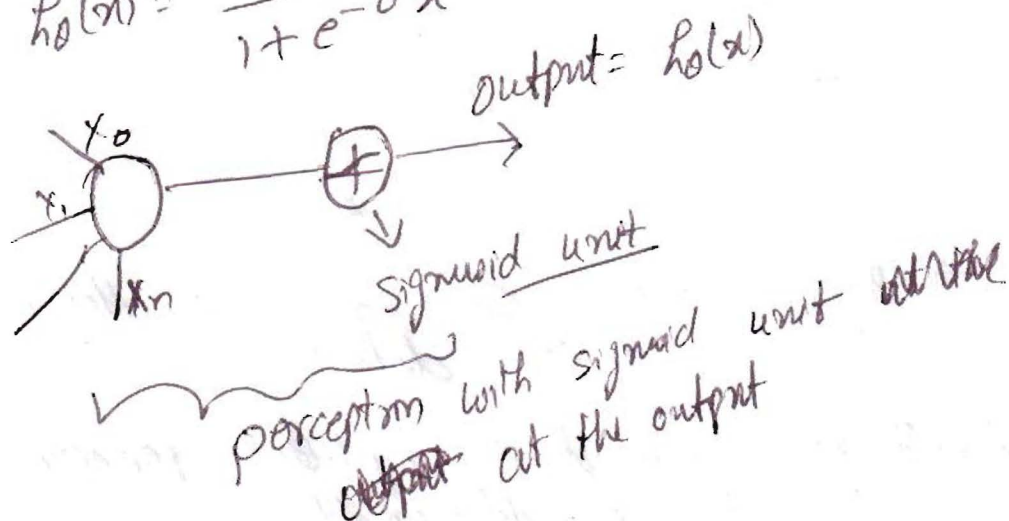 hθ(x) =
1+ e^-θ x
output = hθ(x)
x0
x1
xn
+
sigmoid unit
perceptron with sigmoid unit
at the output